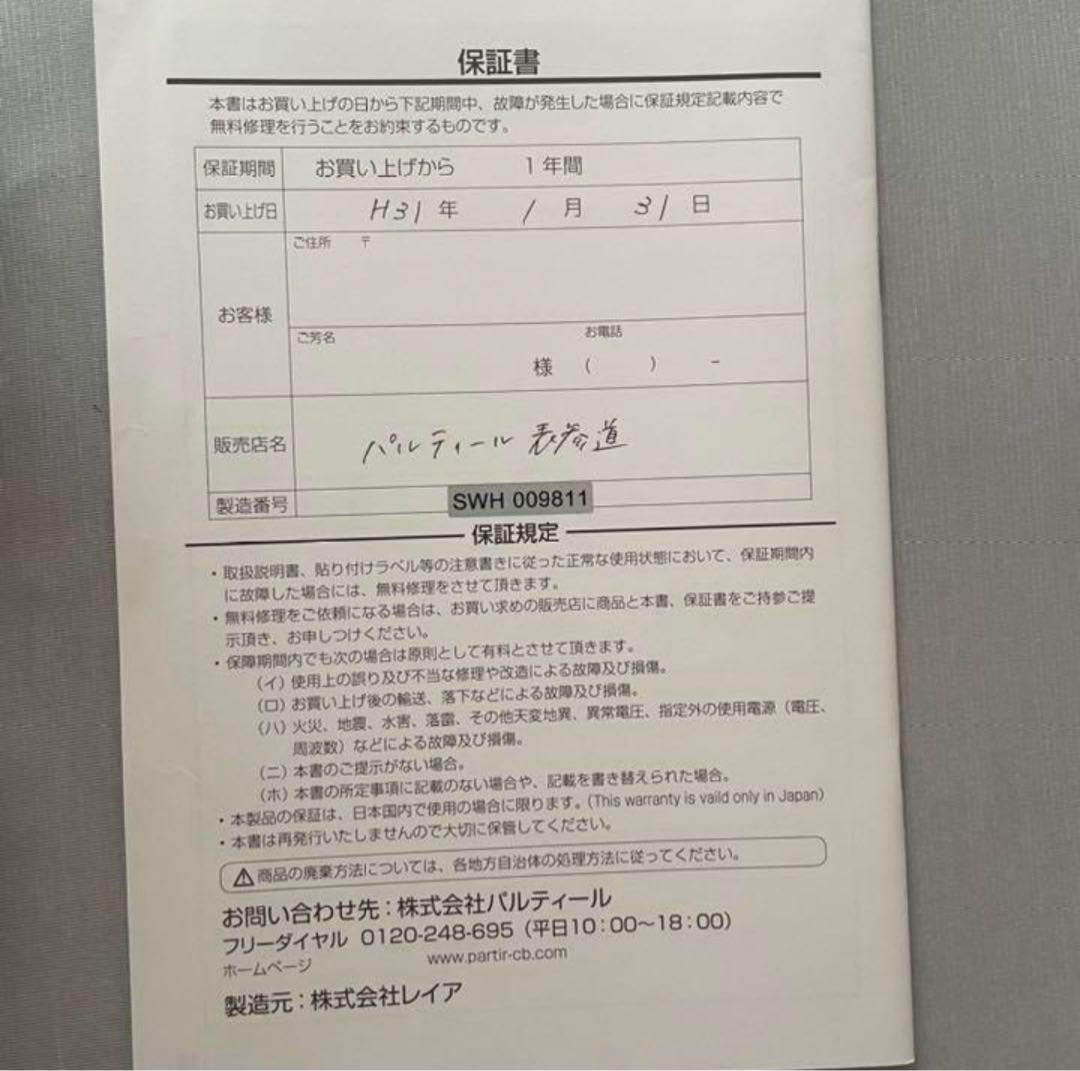 保証書
本書はお買い上げの日から下記期間中、故障が発生した場合に保証規定記載内容で
無料修理を行うことをお約束するものです。
保証期間 お買い上げから 1年間
お買い上げ日 H31年 1月 31日
ご住所 〒
お客様
ご芳名 お電話
様 ( ) -
販売店名 パルティール 表参道
製造番号 SWH 009811
保証規定
・取扱説明書、貼り付けラベル等の注意書きに従った正常な使用状態において、保証期間内
に故障した場合には、無料修理をさせて頂きます。
・無料修理をご依頼になる場合は、お買い求めの販売店に商品と本書、保証書をご持参ご提
示頂き、お申しつけください。
・保障期間内でも次の場合は原則として有料とさせて頂きます。
(イ)使用上の誤り及び不当な修理や改造による故障及び損傷。
(ロ)お買い上げ後の輸送、落下などによる故障及び損傷。
(ハ)火災、地震、水害、落雷、その他天変地異、異常電圧、指定外の使用電源(電圧、
周波数)などによる故障及び損傷。
(ニ)本書のご提示がない場合。
(ホ)本書の所定事項に記載のない場合や、記載を書き替えられた場合。
・本製品の保証は、日本国内で使用の場合に限ります。(This warranty is vaild only in Japan)
・本書は再発行いたしませんので大切に保管してください。
⚠商品の廃棄方法については、各地方自治体の処理方法に従ってください。
お問い合わせ先：株式会社パルティール
フリーダイヤル 0120-248-695（平日10：00〜18：00）
ホームページ www.partir-cb.com
製造元：株式会社レイア